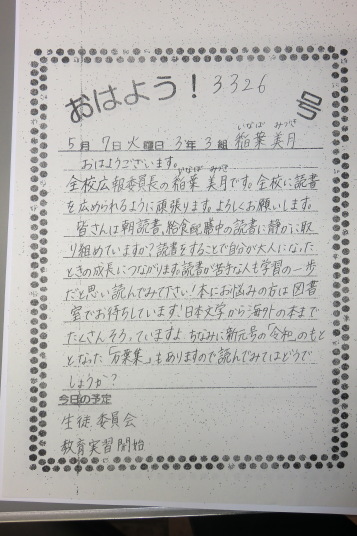 おはよう！3326号
いなば みづき
5月 7日 火曜日 3年 3組 稲葉 美月
おはようございます。
いなば みづき
全校広報委員長の稲葉 美月です。全校に読書
を広められるように頑張ります。よろしくお願いします。
皆さんは朝読書、給食配膳中の読書に静かに取
り組めていますか？読書をすることで自分が大人になった
ときの成長につながります。読書が苦手な人も学習の一歩
だと思い読んでみて下さい！本にお悩みの方は図書
室でお待ちしています！日本文学から海外の本まで
たくさんそろっていますよ。ちなみに新元号の「令和」のもと
となった「万葉集」もありますので読んでみてはどうで
しょうか？
今日の予定
生徒委員会
教育実習開始